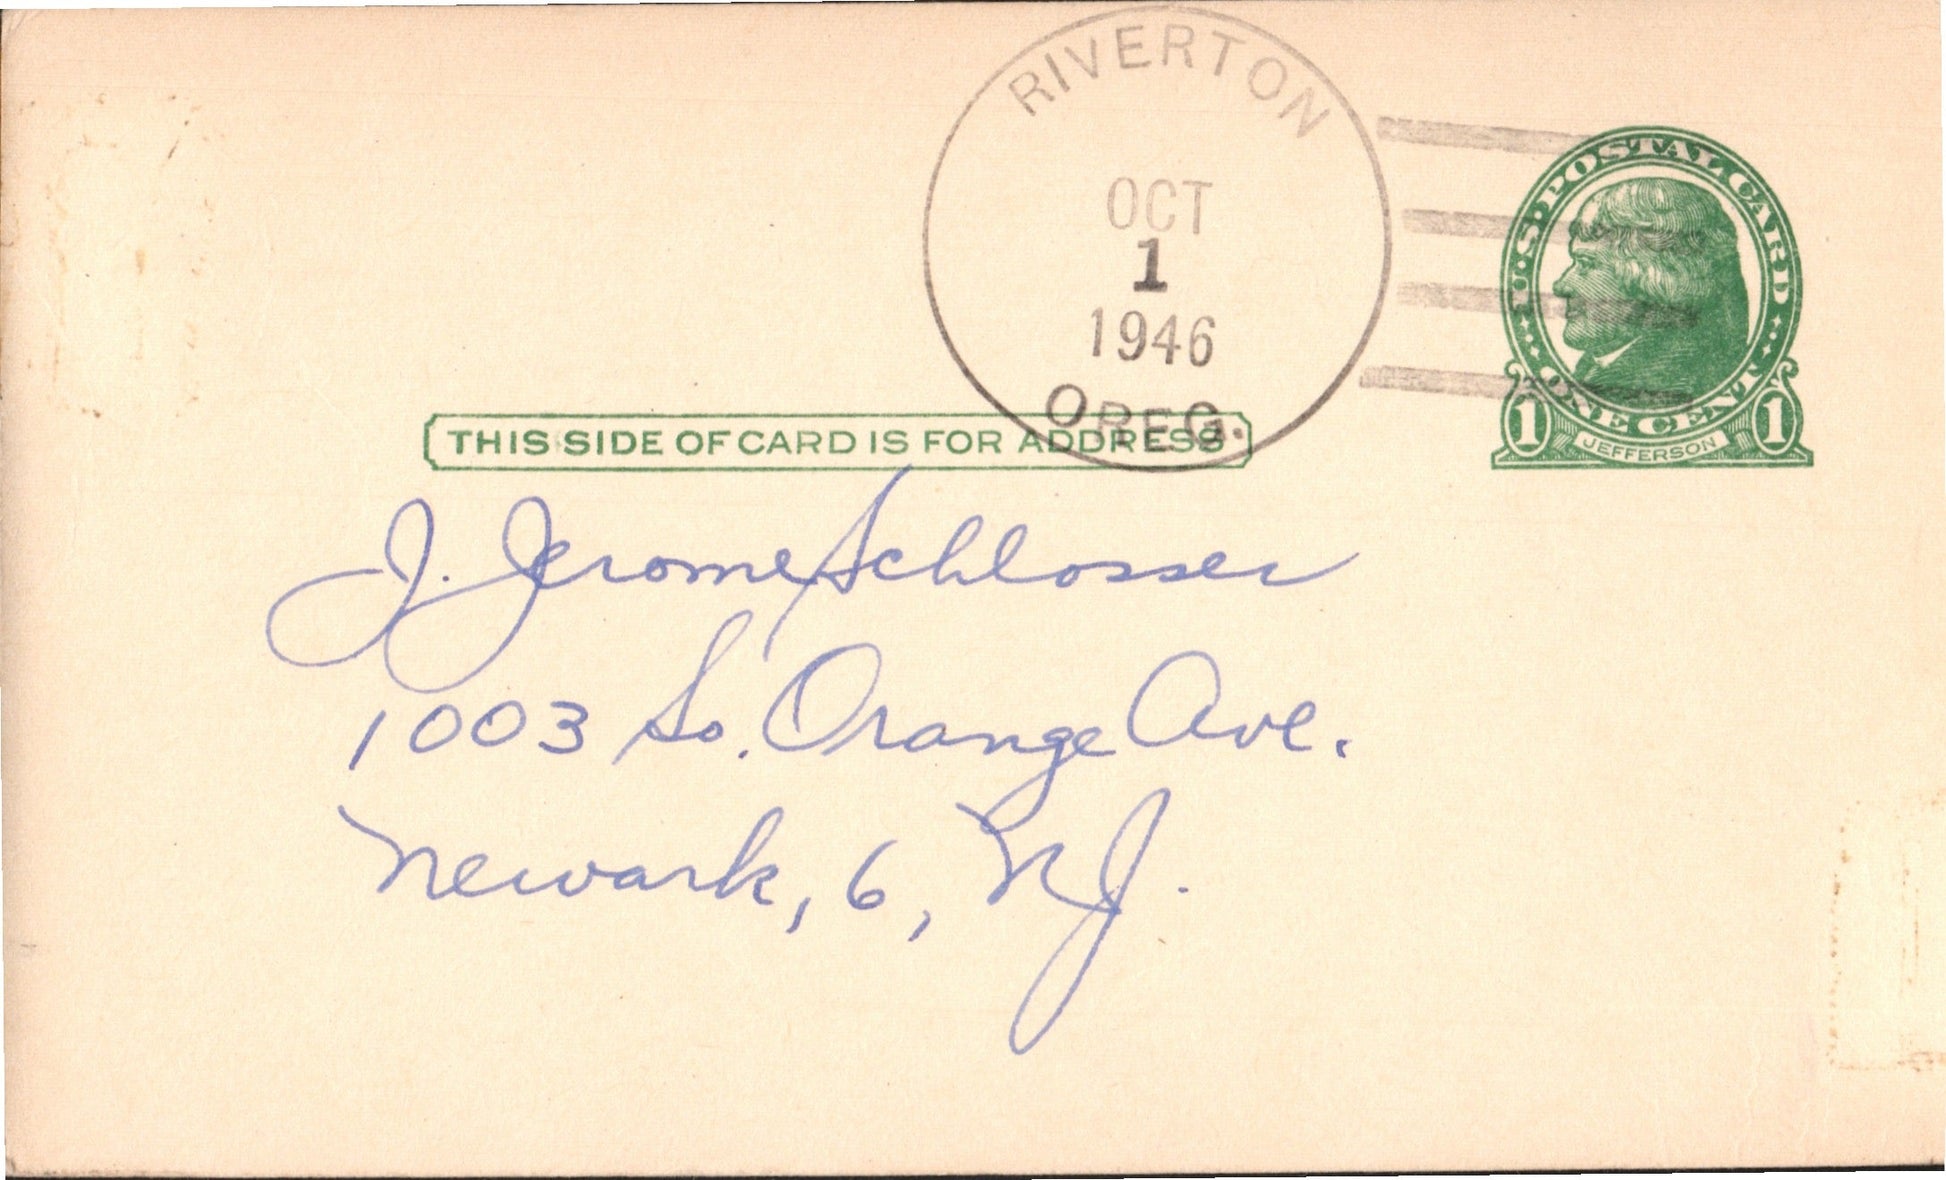 RIVERTON
OCT
1
1946
OREG.
U·S·POSTAL CARD
ONE CENT
1 JEFFERSON 1
THIS SIDE OF CARD IS FOR ADDRESS
J. Jerome Schlosser
1003 So. Orange Ave.
Newark, 6, N.J.